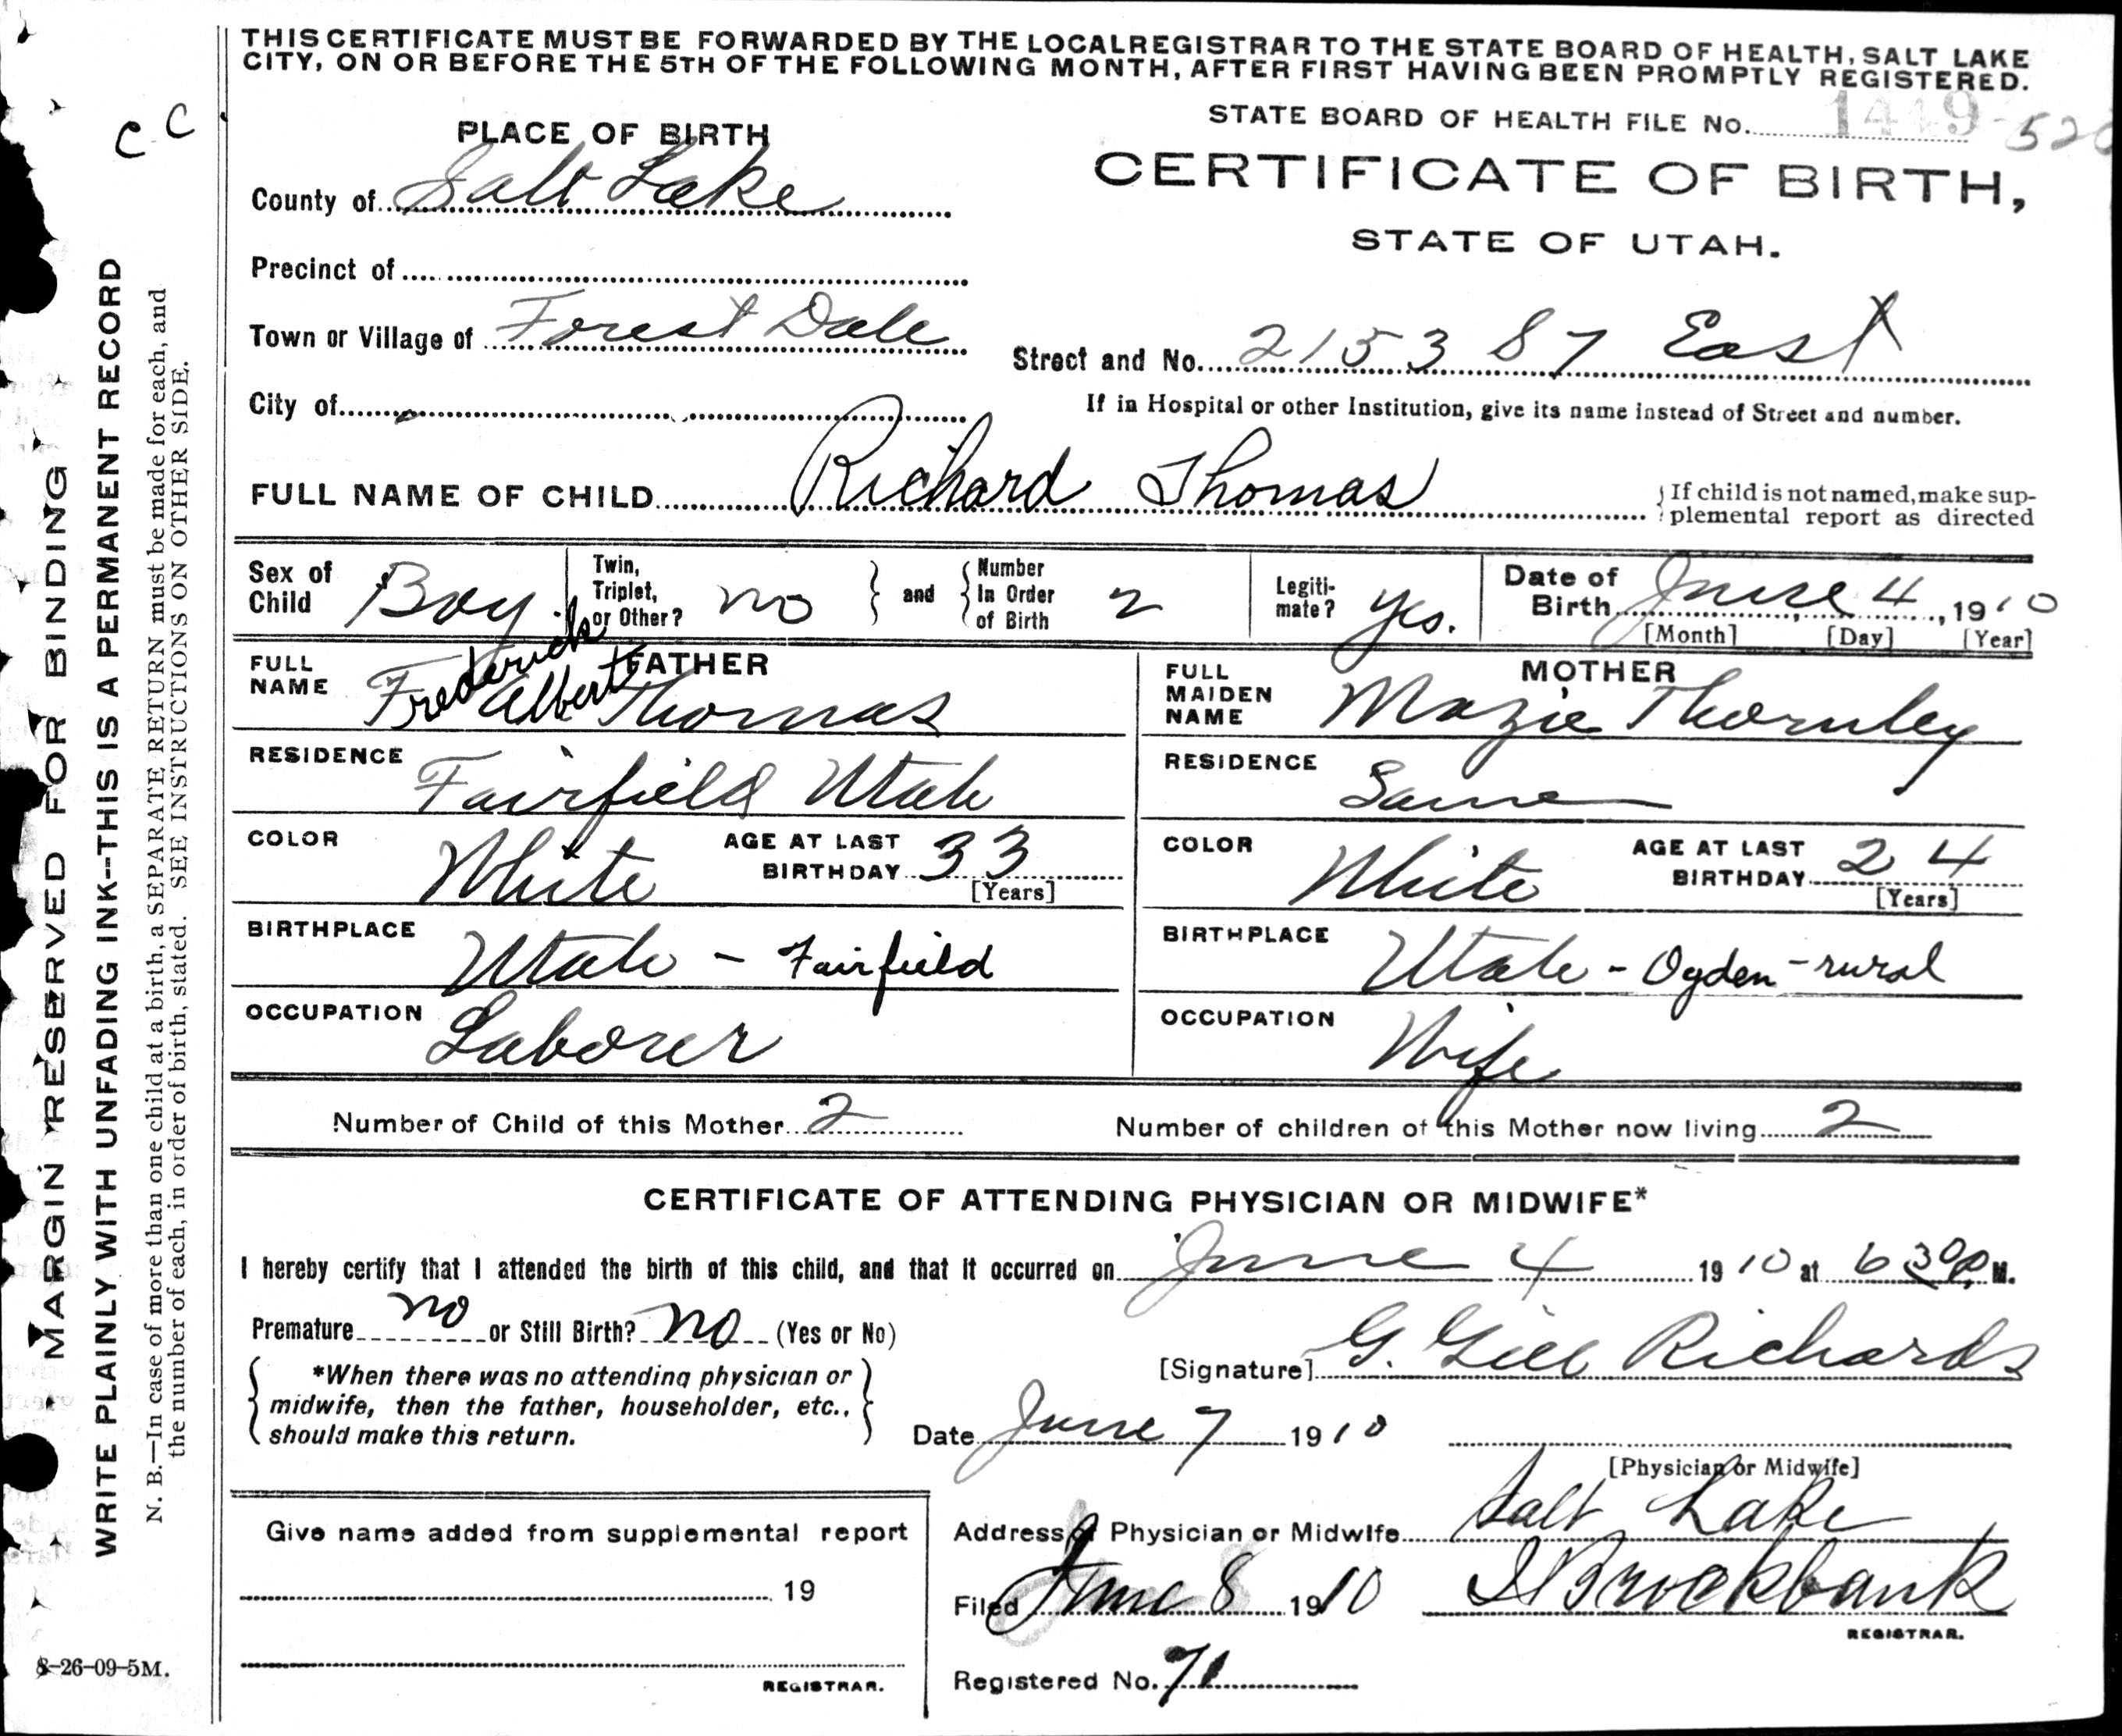 THIS CERTIFICATE MUST BE FORWARDED BY THE LOCAL REGISTRAR TO THE STATE BOARD OF HEALTH, SALT LAKE
CITY, ON OR BEFORE THE 5TH OF THE FOLLOWING MONTH, AFTER FIRST HAVING BEEN PROMPTLY REGISTERED.
C C
STATE BOARD OF HEALTH FILE No. 1449-520
PLACE OF BIRTH
CERTIFICATE OF BIRTH,
STATE OF UTAH.
County of Salt Lake
Precinct of
Town or Village of Forest Dale
Street and No. 2153 S 7 East
City of
If in Hospital or other Institution, give its name instead of Street and number.
FULL NAME OF CHILD Richard Thomas
If child is not named, make sup-
plemental report as directed
Sex of Child Boy
Twin, Triplet, or Other? no
and
Number In Order of Birth 2
Legiti-mate? yes.
Date of Birth June 4, 1910
[Month] [Day] [Year]
FATHER
FULL NAME Frederick Albert Thomas
RESIDENCE Fairfield Utah
COLOR White
AGE AT LAST BIRTHDAY 33
[Years]
BIRTHPLACE Utah - Fairfield
OCCUPATION Laborer
MOTHER
FULL MAIDEN NAME Mazie Thornley
RESIDENCE Same
COLOR White
AGE AT LAST BIRTHDAY 24
[Years]
BIRTHPLACE Utah - Ogden - rural
OCCUPATION Wife
Number of Child of this Mother 2
Number of children of this Mother now living 2
CERTIFICATE OF ATTENDING PHYSICIAN OR MIDWIFE*
I hereby certify that I attended the birth of this child, and that it occurred on June 4 1910 at 6 30 P. M.
Premature no or Still Birth? no (Yes or No)
*When there was no attending physician or
midwife, then the father, householder, etc.,
should make this return.
[Signature] G. Gill Richards
Date June 7 1910
[Physician or Midwife]
Give name added from supplemental report
19
REGISTRAR.
Address of Physician or Midwife Salt Lake
Filed June 8 1910 Brockbank
REGISTRAR.
Registered No. 71
MARGIN RESERVED FOR BINDING
WRITE PLAINLY WITH UNFADING INK--THIS IS A PERMANENT RECORD
N. B.—In case of more than one child at a birth, a SEPARATE RETURN must be made for each, and
the number of each, in order of birth, stated. SEE INSTRUCTIONS ON OTHER SIDE.
8-26-09-5M.